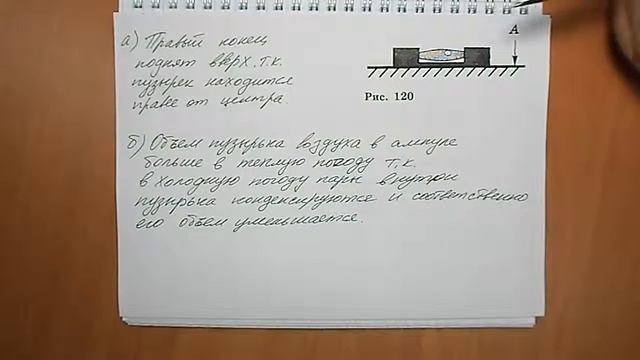 а) Правый конец
поднят вверх. т.к.
пузырек находится
правее от центра.
A
Рис. 120
б) Объем пузырька воздуха в ампуле
больше в теплую погоду т.к.
в холодную погоду пары внутри
пузырька конденсируются и соответственно
его объем уменьшается.